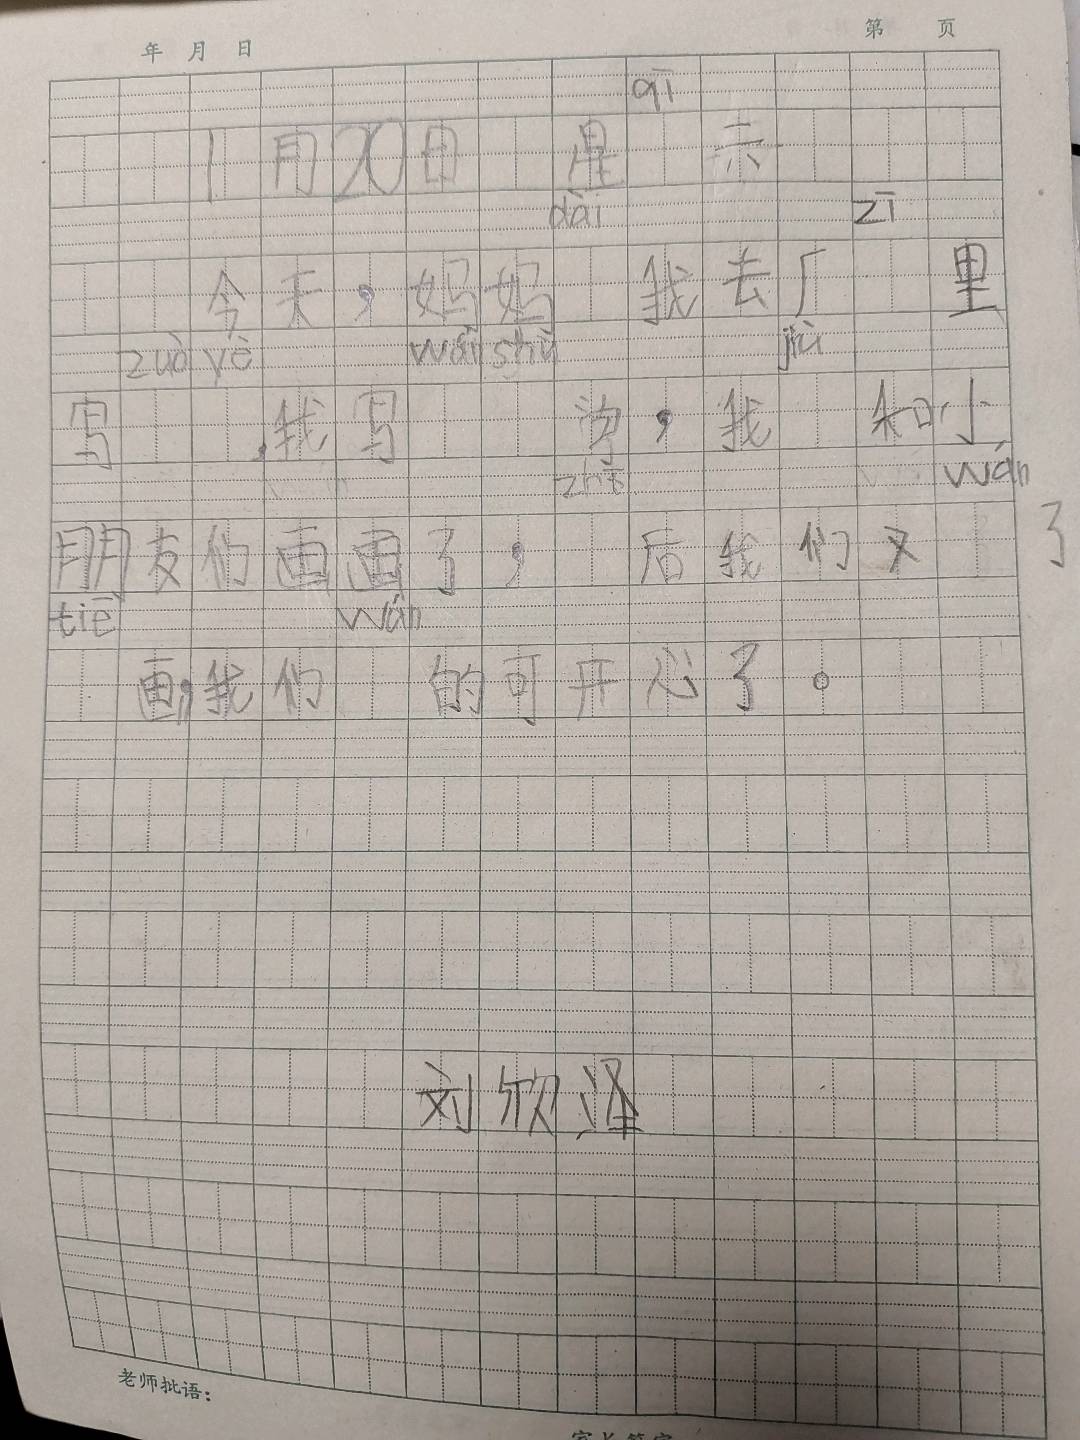 年 月 日 第 页
qī
1月20日 星 六
dài zī
今天，妈妈 我去厂 里
zuò yè wán shù jiù
写 ，我写 ，我 和小
zhī wán
朋友们画画了， 后我们又 了
tiē wán
画，我们 的可开心了。
刘欣泽
老师批语：